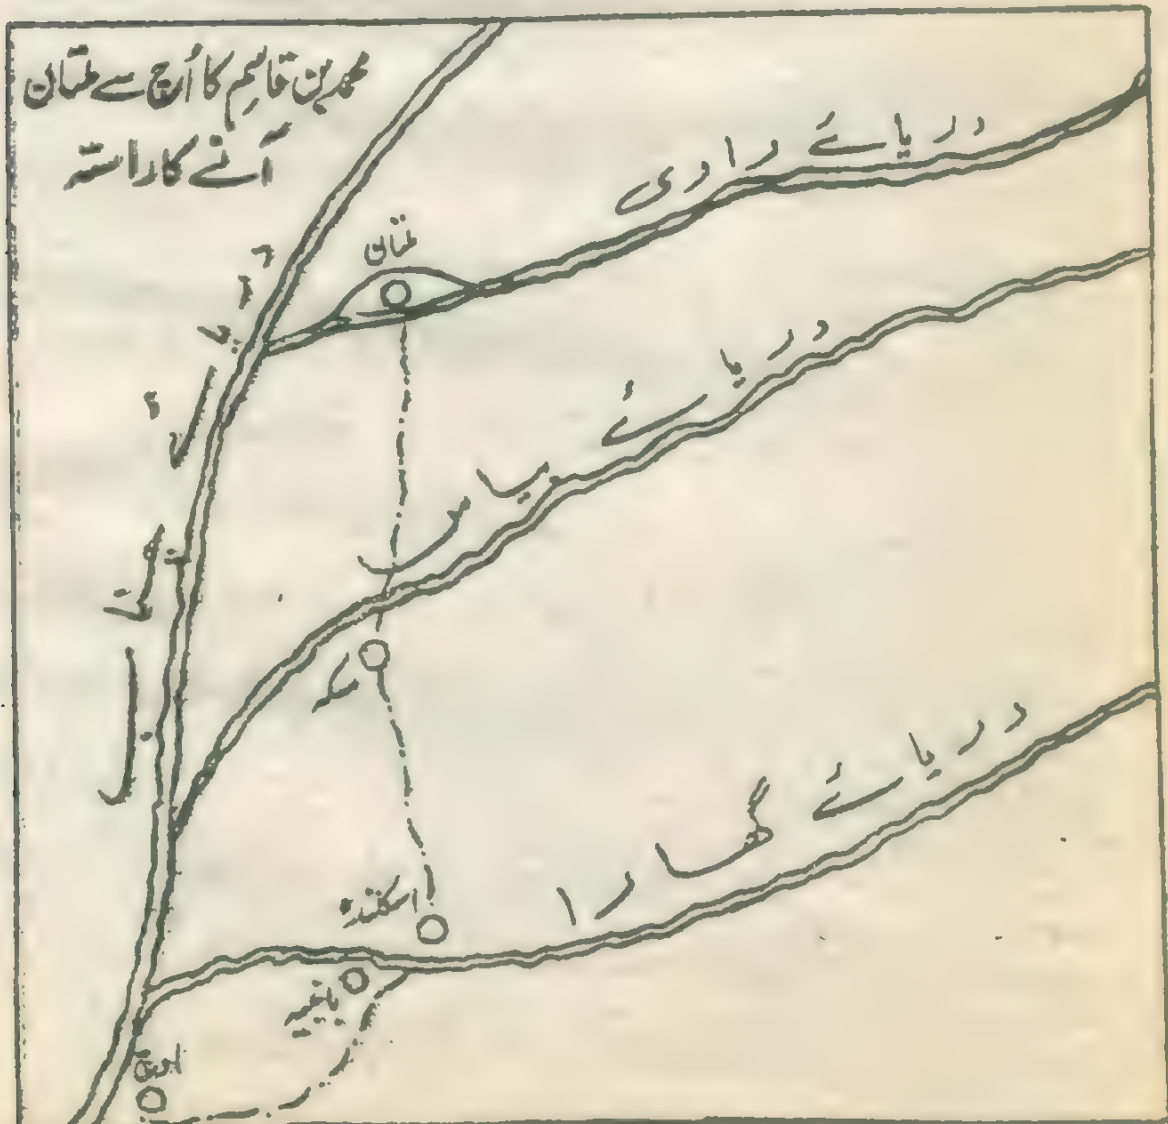 محمد بن قاسم کا اُچ سے ملتان
آنے کا راستہ
دریائے راوی
ملتان
دریائے چناب
دریائے بیاس
سکہ
دریائے گھارا
اسکلندہ
اوچ